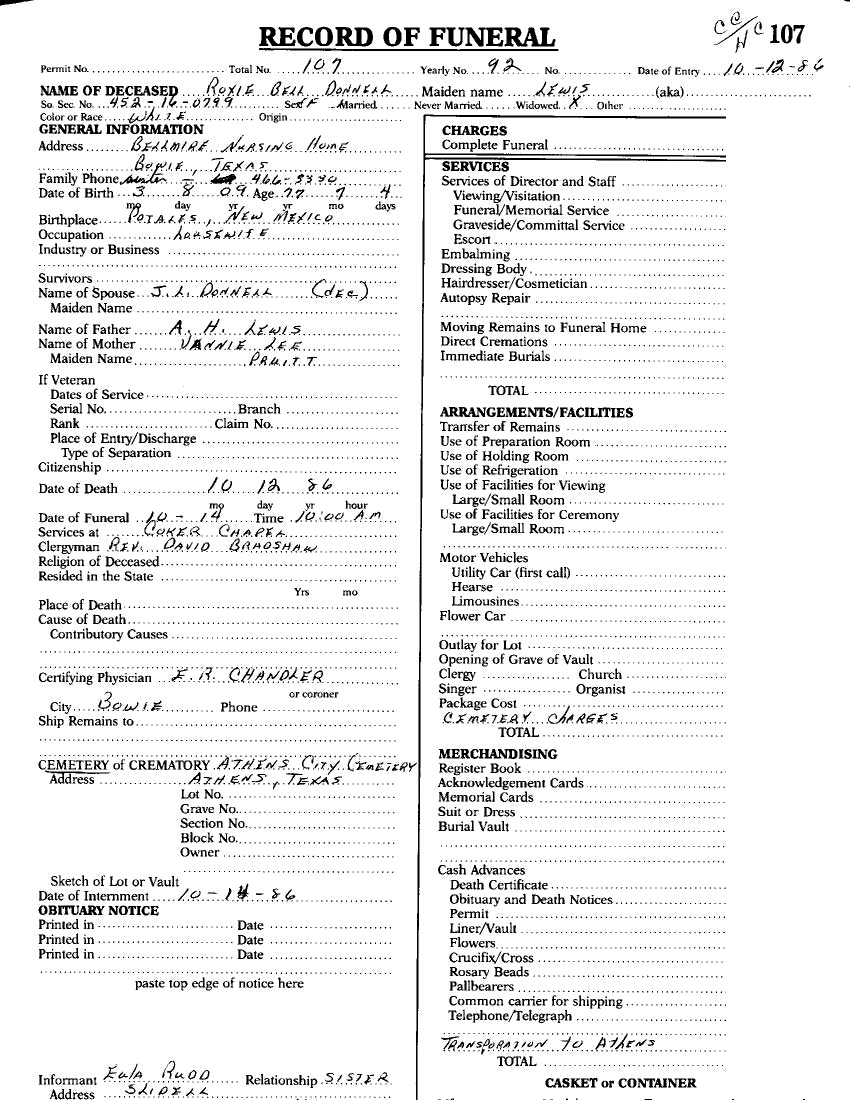 RECORD OF FUNERAL
CC HC 107
Permit No. Total No. 107 Yearly No. 92 No. Date of Entry 10-12-86
NAME OF DECEASED ROXIE BELL DONNELL Maiden name LEWIS (aka)
So. Sec. No. 452-16-0799 Sex F Married Never Married Widowed X Other
Color or Race WHITE Origin
GENERAL INFORMATION
Address BELLMIRE NURSING HOME
BOWIE, TEXAS
Family Phone sister - 466-3330
Date of Birth 3 8 09 Age 77 7 4
mo day yr yr mo days
Birthplace POTALES, NEW MEXICO
Occupation HOUSEWIFE
Industry or Business
Survivors
Name of Spouse J. L. DONNELL (DEC)
Maiden Name
Name of Father A. H. LEWIS
Name of Mother VANNIE LEE
Maiden Name PRUITT
If Veteran
Dates of Service
Serial No. Branch
Rank Claim No.
Place of Entry/Discharge
Type of Separation
Citizenship
Date of Death 10 12 86
mo day yr hour
Date of Funeral 10-14 Time 10:00 AM
Services at COKER CHAPEL
Clergyman REV. DAVID BRADSHAW
Religion of Deceased
Resided in the State
Yrs mo
Place of Death
Cause of Death
Contributory Causes
Certifying Physician E. R. CHANDLER
or coroner
City BOWIE Phone
Ship Remains to
CEMETERY of CREMATORY ATHENS CITY CEMETERY
Address ATHENS, TEXAS
Lot No.
Grave No.
Section No.
Block No.
Owner
Sketch of Lot or Vault
Date of Internment 10-14-86
OBITUARY NOTICE
Printed in Date
Printed in Date
Printed in Date
paste top edge of notice here
Informant Eula RUDD Relationship SISTER
Address SLIDELL
CHARGES
Complete Funeral
SERVICES
Services of Director and Staff
Viewing/Visitation
Funeral/Memorial Service
Graveside/Committal Service
Escort
Embalming
Dressing Body
Hairdresser/Cosmetician
Autopsy Repair
Moving Remains to Funeral Home
Direct Cremations
Immediate Burials
TOTAL
ARRANGEMENTS/FACILITIES
Transfer of Remains
Use of Preparation Room
Use of Holding Room
Use of Refrigeration
Use of Facilities for Viewing
Large/Small Room
Use of Facilities for Ceremony
Large/Small Room
Motor Vehicles
Utility Car (first call)
Hearse
Limousines
Flower Car
Outlay for Lot
Opening of Grave of Vault
Clergy Church
Singer Organist
Package Cost
CEMETERY CHARGES
TOTAL
MERCHANDISING
Register Book
Acknowledgement Cards
Memorial Cards
Suit or Dress
Burial Vault
Cash Advances
Death Certificate
Obituary and Death Notices
Permit
Liner/Vault
Flowers
Crucifix/Cross
Rosary Beads
Pallbearers
Common carrier for shipping
Telephone/Telegraph
TRANSPORATION TO ATHENS
TOTAL
CASKET or CONTAINER